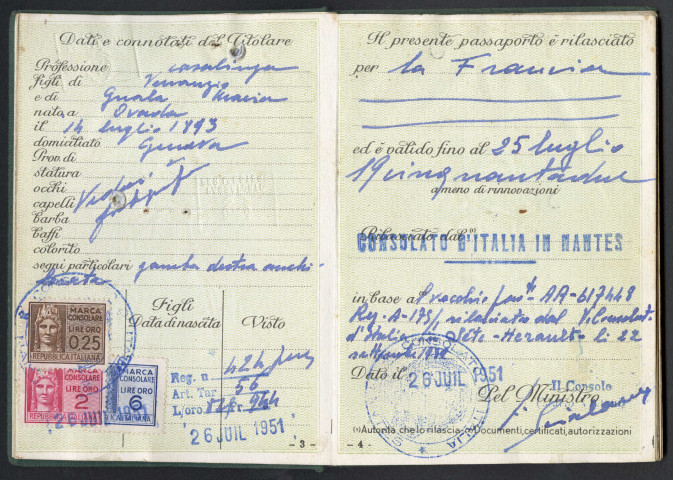 Dati e connotati del Titolare
Professione casalinga
figli di Venanzio
e di Guala Maria
nato a Ovada
il 14 luglio 1893
domiciliato Genova
Prov. di
statura
occhi
capelli Vedasi
barba
baffi
colorito
segni particolari gamba destra anchi-
losata
MARCA
CONSOLARE
LIRE ORO
0,25
REPUBBLICA ITALIANA
MARCA
CONSOLARE
LIRE ORO
2
REPUBBLICA ITALIANA
MARCA
CONSOLARE
LIRE ORO
6
Figli
Data di nascita
Visto
Reg. n. 424
Art. Tar. 56
L/oro
26 JUIL 1951
- 3 -
Il presente passaporto è rilasciato
per la Francia
ed è valido fino al 25 luglio
19cinquantadue
a meno di rinnovazioni
Rilasciato dal (1)
CONSOLATO D'ITALIA IN NANTES
in base a vecchio pass.to AA-617448
Reg. A-175/ rilasciato dal V. Consolat.
d'Italia Sète-Herault- li 22
Dato il 26 JUIL 1951
Il Console
Pel Ministro
(1) Autorità che lo rilascia - Documenti, certificati, autorizzazioni
- 4 -